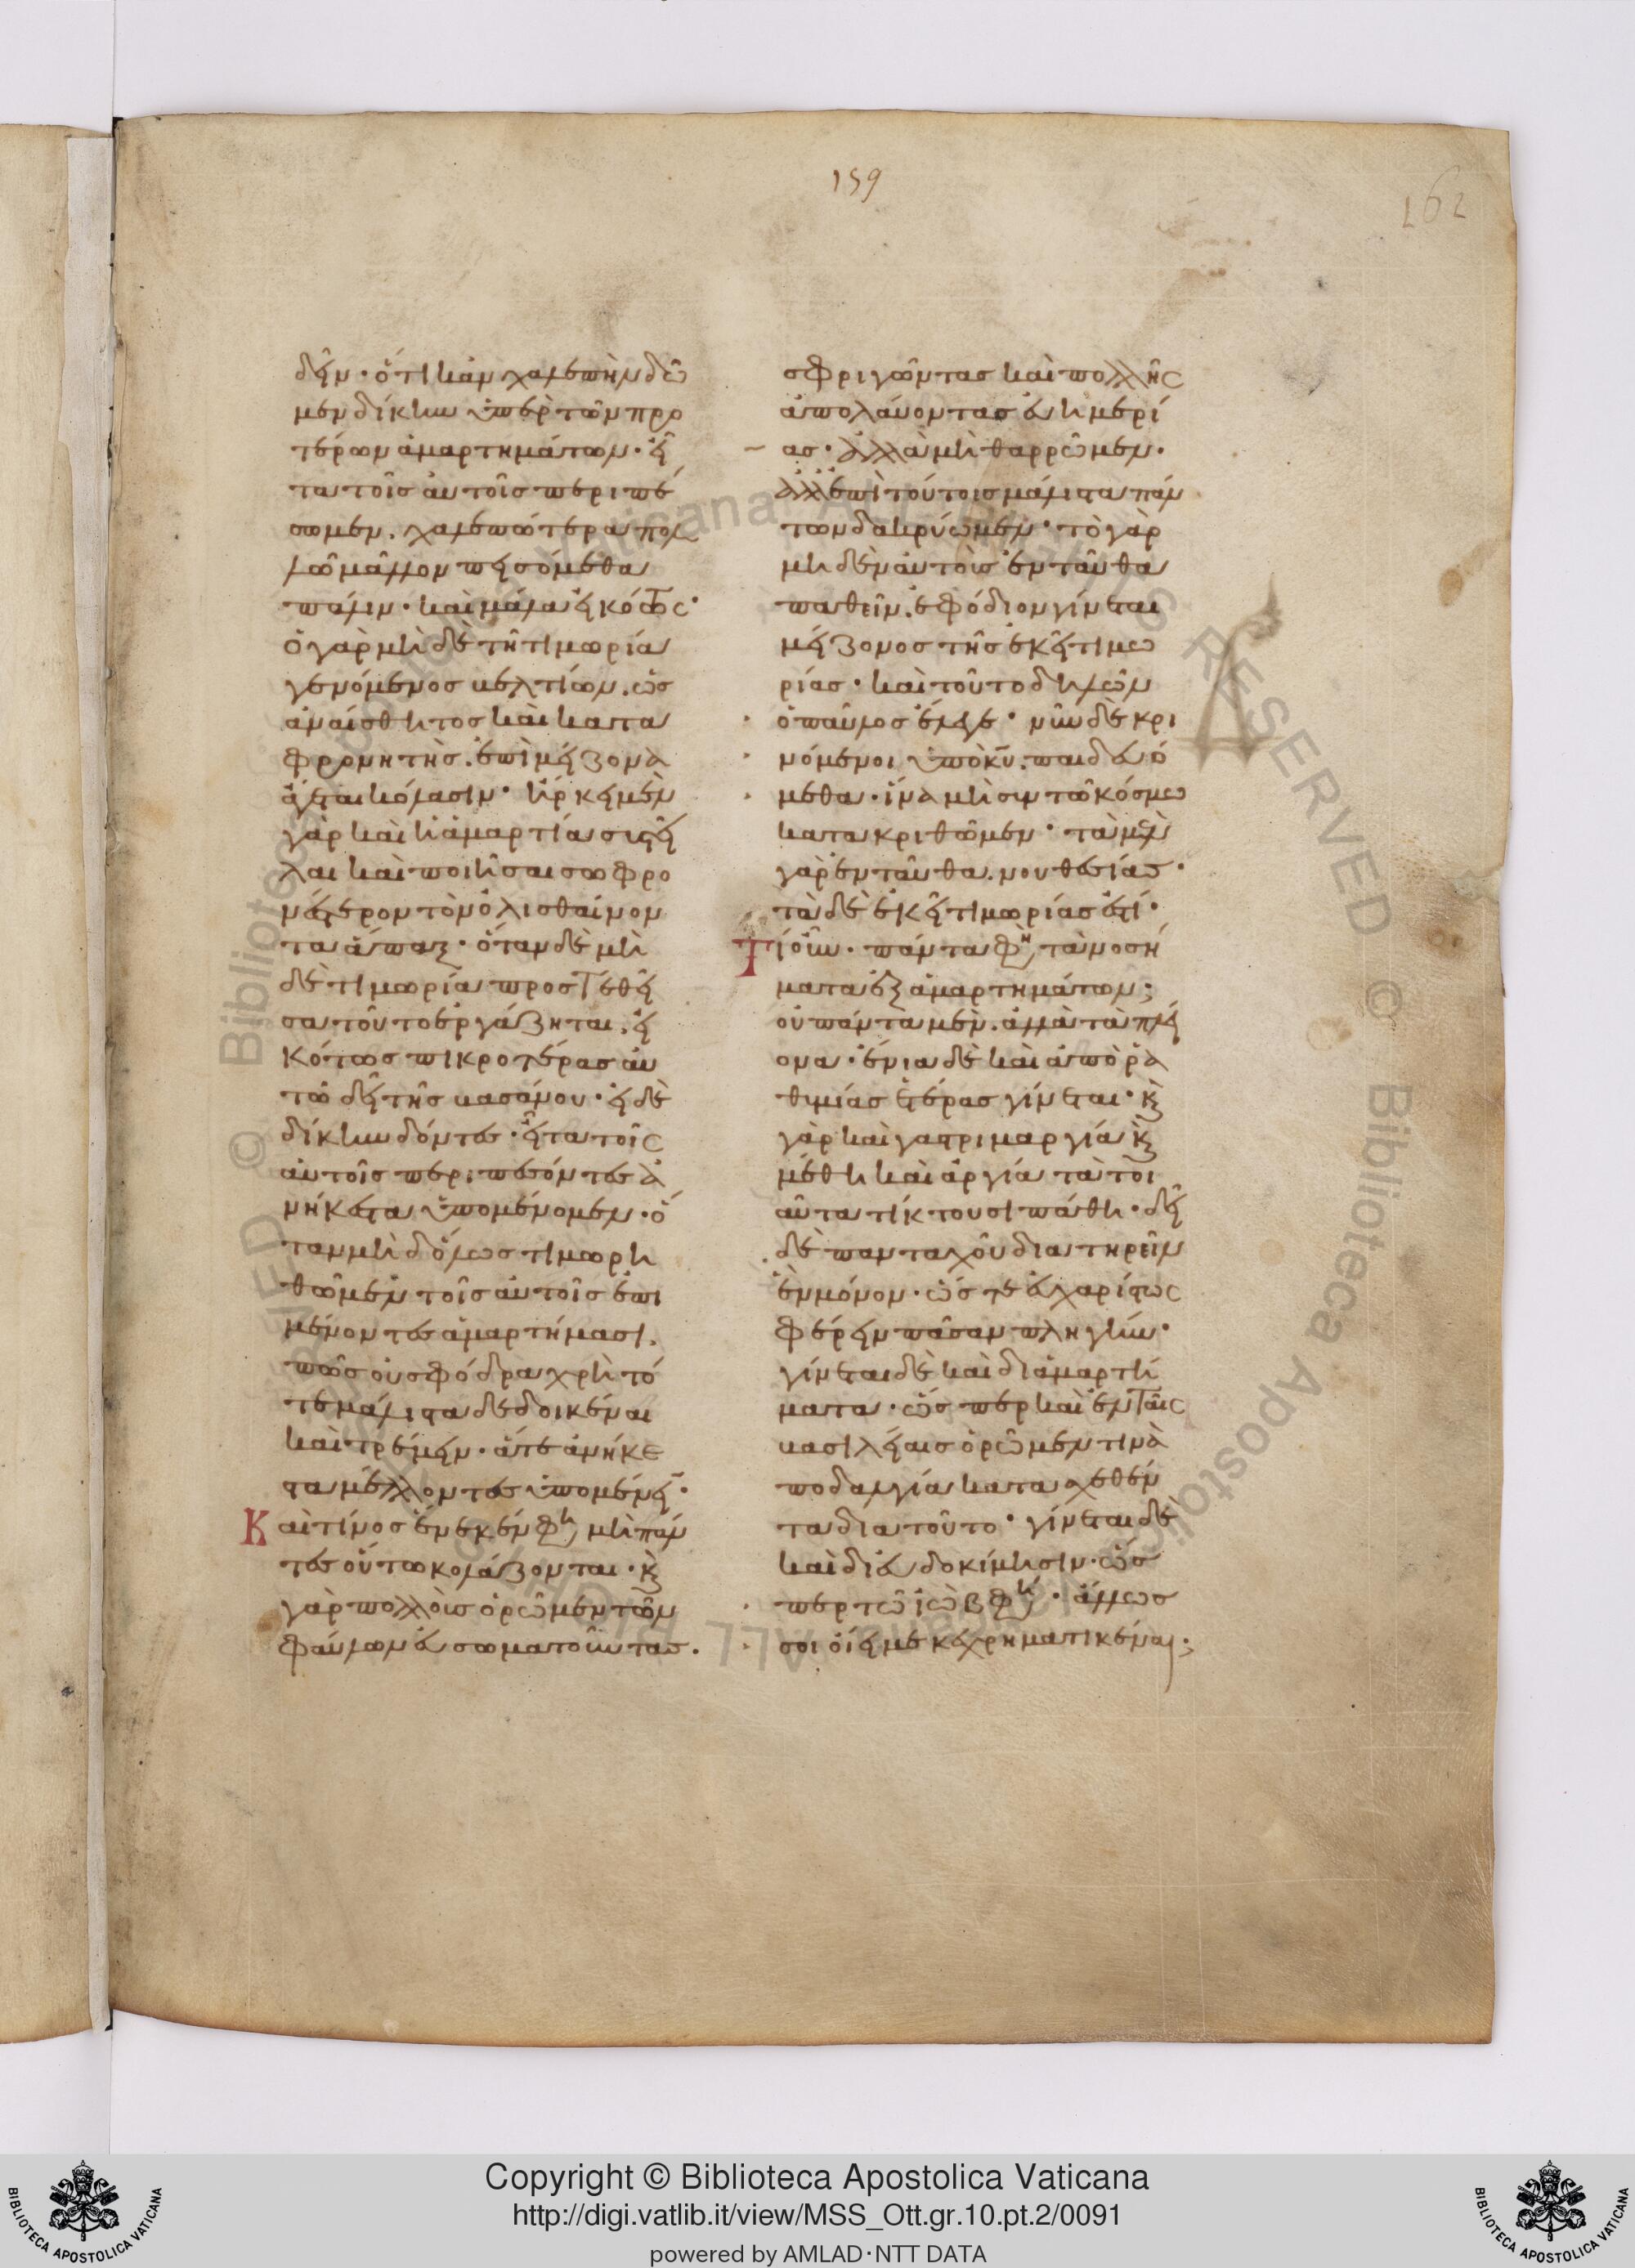 159
162
δεῖν· ὅτι κἂν χαλεπὴν δῶ
μεν δίκην ὑπὲρ τῶν προ
τέρων ἁμαρτημάτων· εἶ
τα τοῖς αὐτοῖς περιπέ
σωμεν, χαλεπώτερα πολ
λῶ μᾶλλον πεισόμεθα
πάλιν· καὶ μάλα εἰκότως·
ὁ γὰρ μὴ δὲ τῆ τιμωρία
γενόμενος βελτίων, ὡς
ἀναίσθητος καὶ κατα
φρονητὴς, ἐπὶ μείζονα
ἄγεται κόλασιν· ἤρκει μὲν
γὰρ καὶ ἡ ἁμαρτία συστεῖ
λαι καὶ ποιῆσαι σωφρο
νέστερον τὸν ὀλισθαίνον
τα ἅπαξ· ὅταν δὲ μὴ
δὲ τιμωρία προστεθεῖ
σα τοῦτο ἐργάζηται, εἰ
κότως πικροτέρας αὐ
τῶ δεῖ τῆς βασάνου· εἰ δὲ
δίκην δόντες· εἶτα τοῖς
αὐτοῖς περιπεσόντες ἀ
νήκεστα ὑπομένομεν· ὅ
ταν μὴ δ' ὅλως τιμωρη
θῶμεν τοῖς αὐτοῖς ἐπι
μένοντες ἁμαρτήμασι,
πῶς οὐ σφόδρα χρὴ τό
τε μάλιστα δεδοικέναι
καὶ τρέμειν· ἅτε ἀνήκε
στα μέλλοντες ὑπομένειν·
Καὶ τίνος ἕνεκέν φη μὴ πάν
τες οὕτω κολάζονται· κ
γὰρ πολλοὺς ὁρῶμεν τῶν
φαύλων εὐσωματοῦντας.
σφριγῶντας καὶ πολλῆς
ἀπολαύοντας εὐημερί
ας· ἀλλὰ μὴ θαρρῶμεν·
ἀλλ' ἐπὶ τούτοις μάλιστα πάν
των δακρύωμεν· τὸ γὰρ
μηδὲν αὐτοὺς ἐνταῦθα
παθεῖν, ἐφόδιον γίνεται
μείζονος τῆς ἐκεῖ τιμω
ρίας· καὶ τοῦτο δηλῶν
ὁ παῦλος ἔλεγε· νῦν δὲ κρι
νόμενοι ὑπὸ κυ, παιδευό
μεθα· ἵνα μὴ συν τῶ κόσμω
κατακριθῶμεν· τὰ μὲν
γὰρ ἐνταῦθα, νουθεσίας·
τὰ δὲ ἐκεῖ τιμωρίας ἐστί·
Τί οὖν· πάντα φη τὰ νοσή
ματα ἐξ ἁμαρτημάτων;
οὐ πάντα μὲν, ἀλλὰ τὰ πλεί
ονα· ἔνια δὲ καὶ ἀπὸ ῥα
θυμίας ἑτέρας γίνεται· κ
γὰρ καὶ γαστριμαργία κ
μέθη καὶ ἀργία τὰ τοι
αῦτα τίκτουσι πάθη· δεῖ
δὲ πανταχοῦ διατηρεῖν
ἓν μόνον· ὥστε εὐχαρίστως
φέρειν πᾶσαν πληγήν·
γίνεται δὲ καὶ δι' ἁμαρτή
ματα· ὥσπερ καὶ ἐν ταῖς
βασιλείαις ὁρῶμεν τινὰ
ποδαλγία κατασχεθέν
τα διὰ τοῦτο· γίνεται δὲ
καὶ δι' εὐδοκίμησιν· ὥσ
περ τῶ ἰὼβ φη· ἄλλως
σοι οἴει με κεχρηματικέναι·;
Copyright © Biblioteca Apostolica Vaticana
http://digi.vatlib.it/view/MSS_Ott.gr.10.pt.2/0091
powered by AMLAD·NTT DATA
BIBLIOTECA APOSTOLICA VATICANA
BIBLIOTECA APOSTOLICA VATICANA